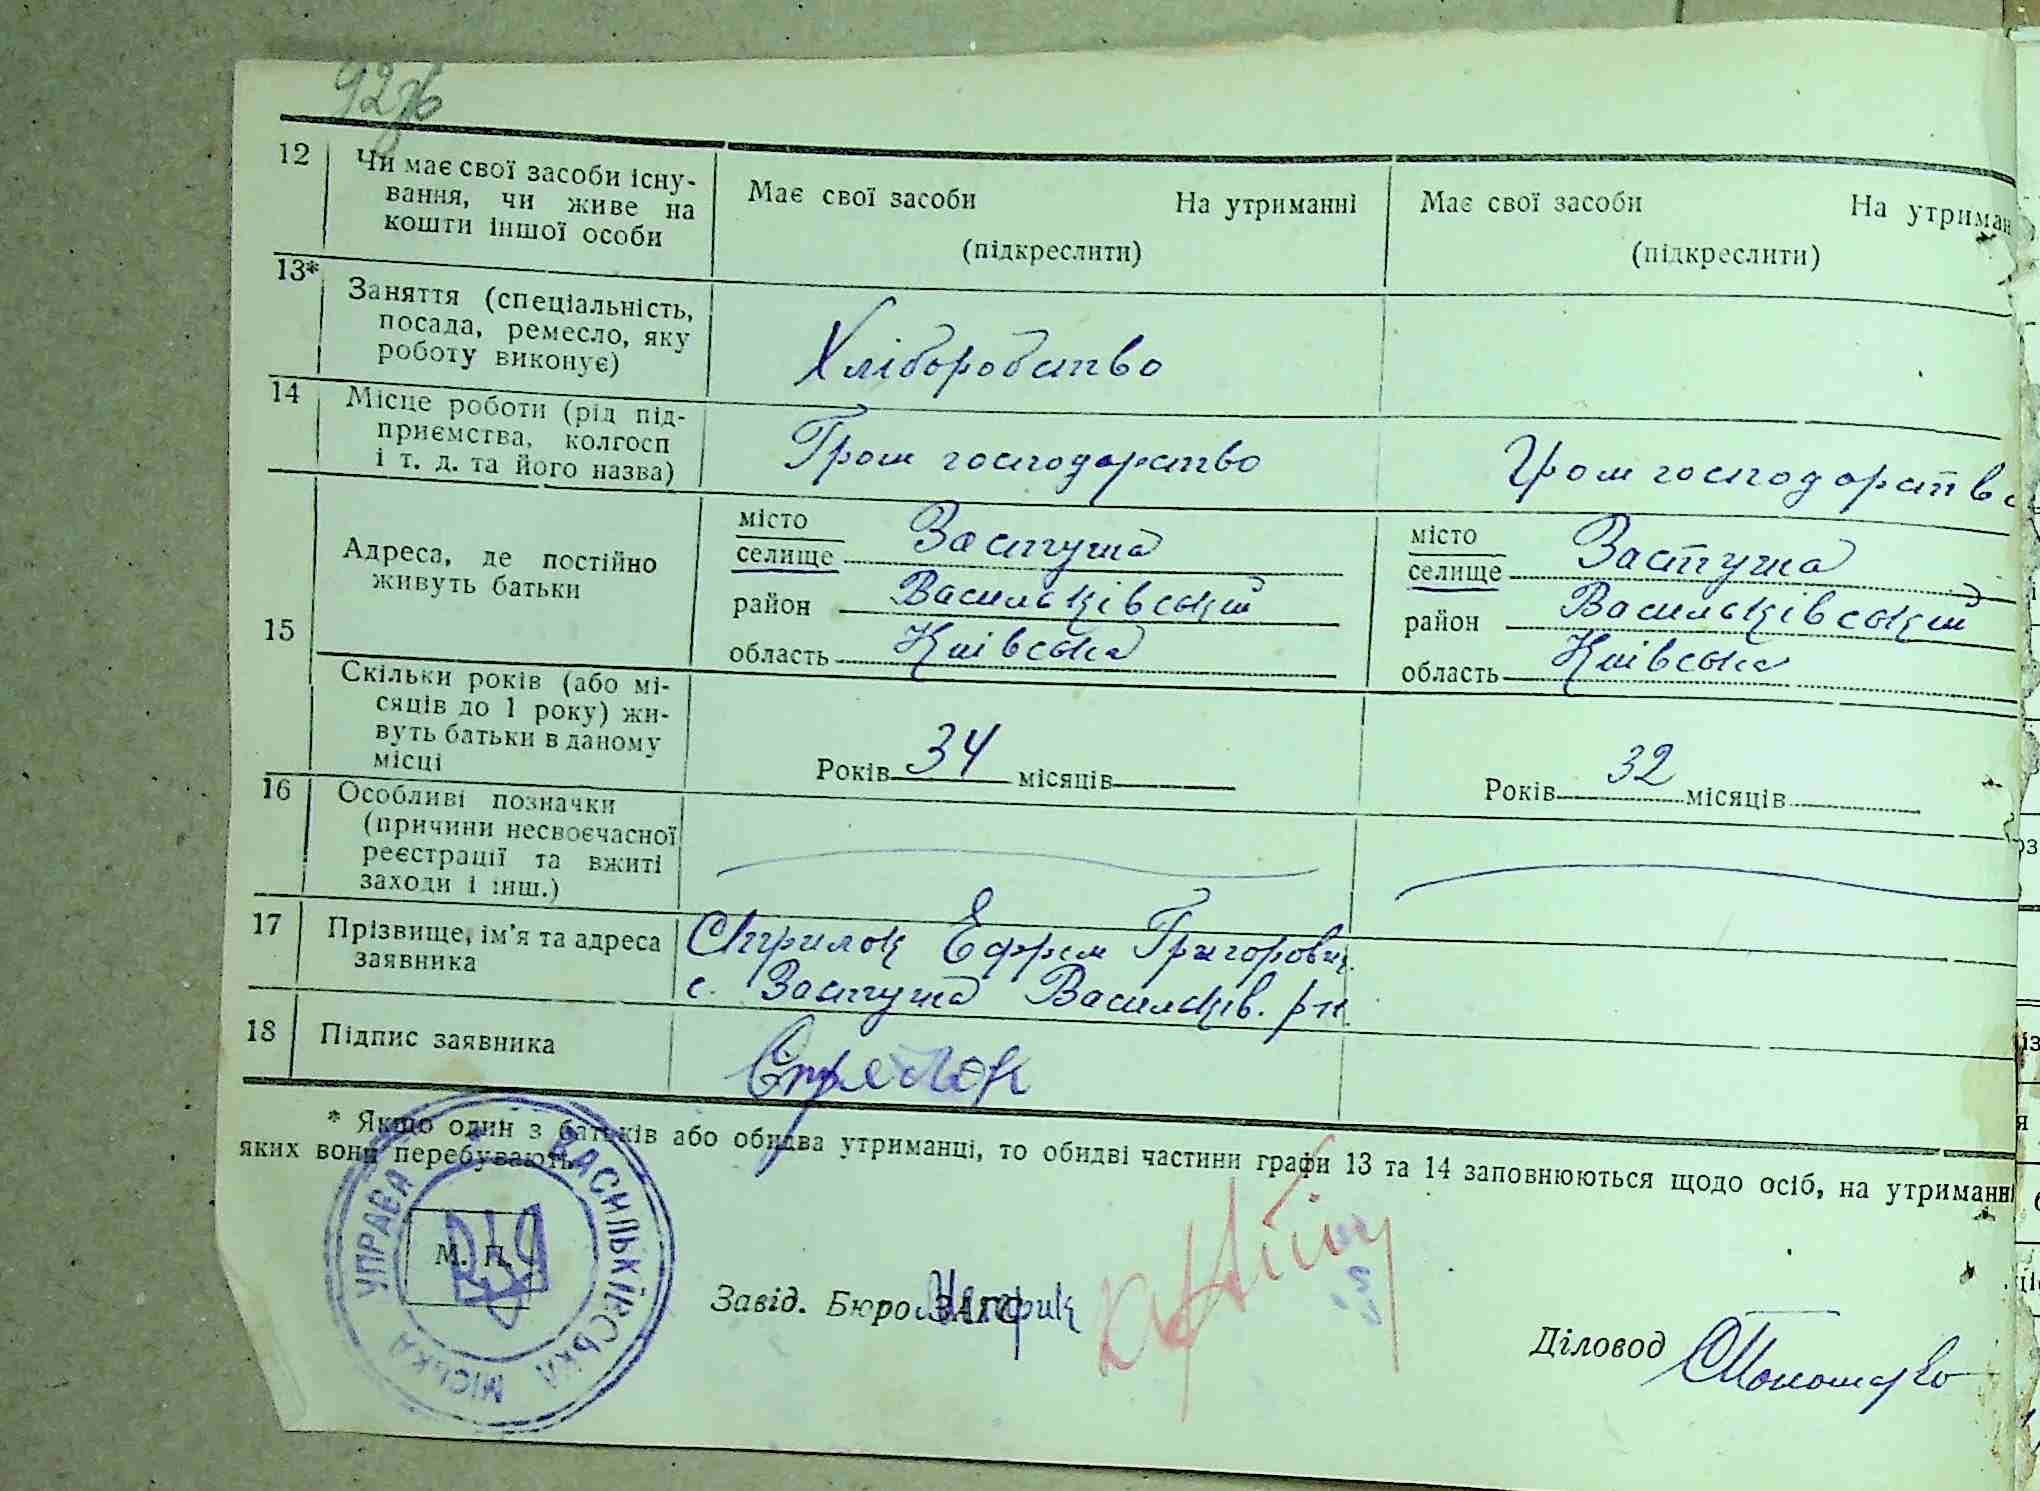 92зв
12 Чи має свої засоби існу-
вання, чи живе на
кошти іншої особи
Має свої засоби На утриманні
(підкреслити)
Має свої засоби На утриман
(підкреслити)
13* Заняття (спеціальність,
посада, ремесло, яку
роботу виконує)
Хліборобство
14 Місце роботи (рід під-
приємства, колгосп
і т. д. та його назва)
Гром господарство
Гром господарство
15
Адреса, де постійно
живуть батьки
місто
селище Застугна
район Васильківський
область Київська
місто
селище Застугна
район Васильківський
область Київська
Скільки років (або мі-
сяців до 1 року) жи-
вуть батьки в даному
місці
Років 34 місяців
Років 32 місяців
16 Особливі позначки
(причини несвоєчасної
реєстрації та вжиті
заходи і інш.)
17 Прізвище, ім'я та адреса
заявника
Стрилок Ефрем Григорович
с. Застугна Васильків. р-н.
18 Підпис заявника
* Якщо один з батьків або обидва утриманці, то обидві частини графи 13 та 14 заповнюються щодо осіб, на утриманні
яких вони перебувають.
ВАСИЛЬКІВСЬКА МІСЬКА УПРАВА
М. П.
Завід. Бюро ЗАГС
Діловод